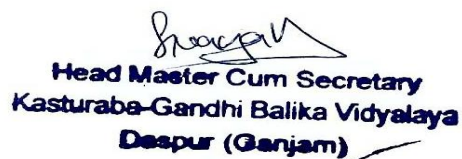 Head Master Cum Secretary
Kasturaba-Gandhi Balika Vidyalaya
Daspur (Ganjam)